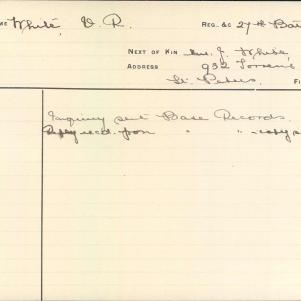 ME White, V. R. REG. &C 27th Bat
NEXT OF KIN Mrs. J. White
ADDRESS 932 Torrens
St. Peters F
Enquiry sent Base Records.
Reply recd. from " " - copy s